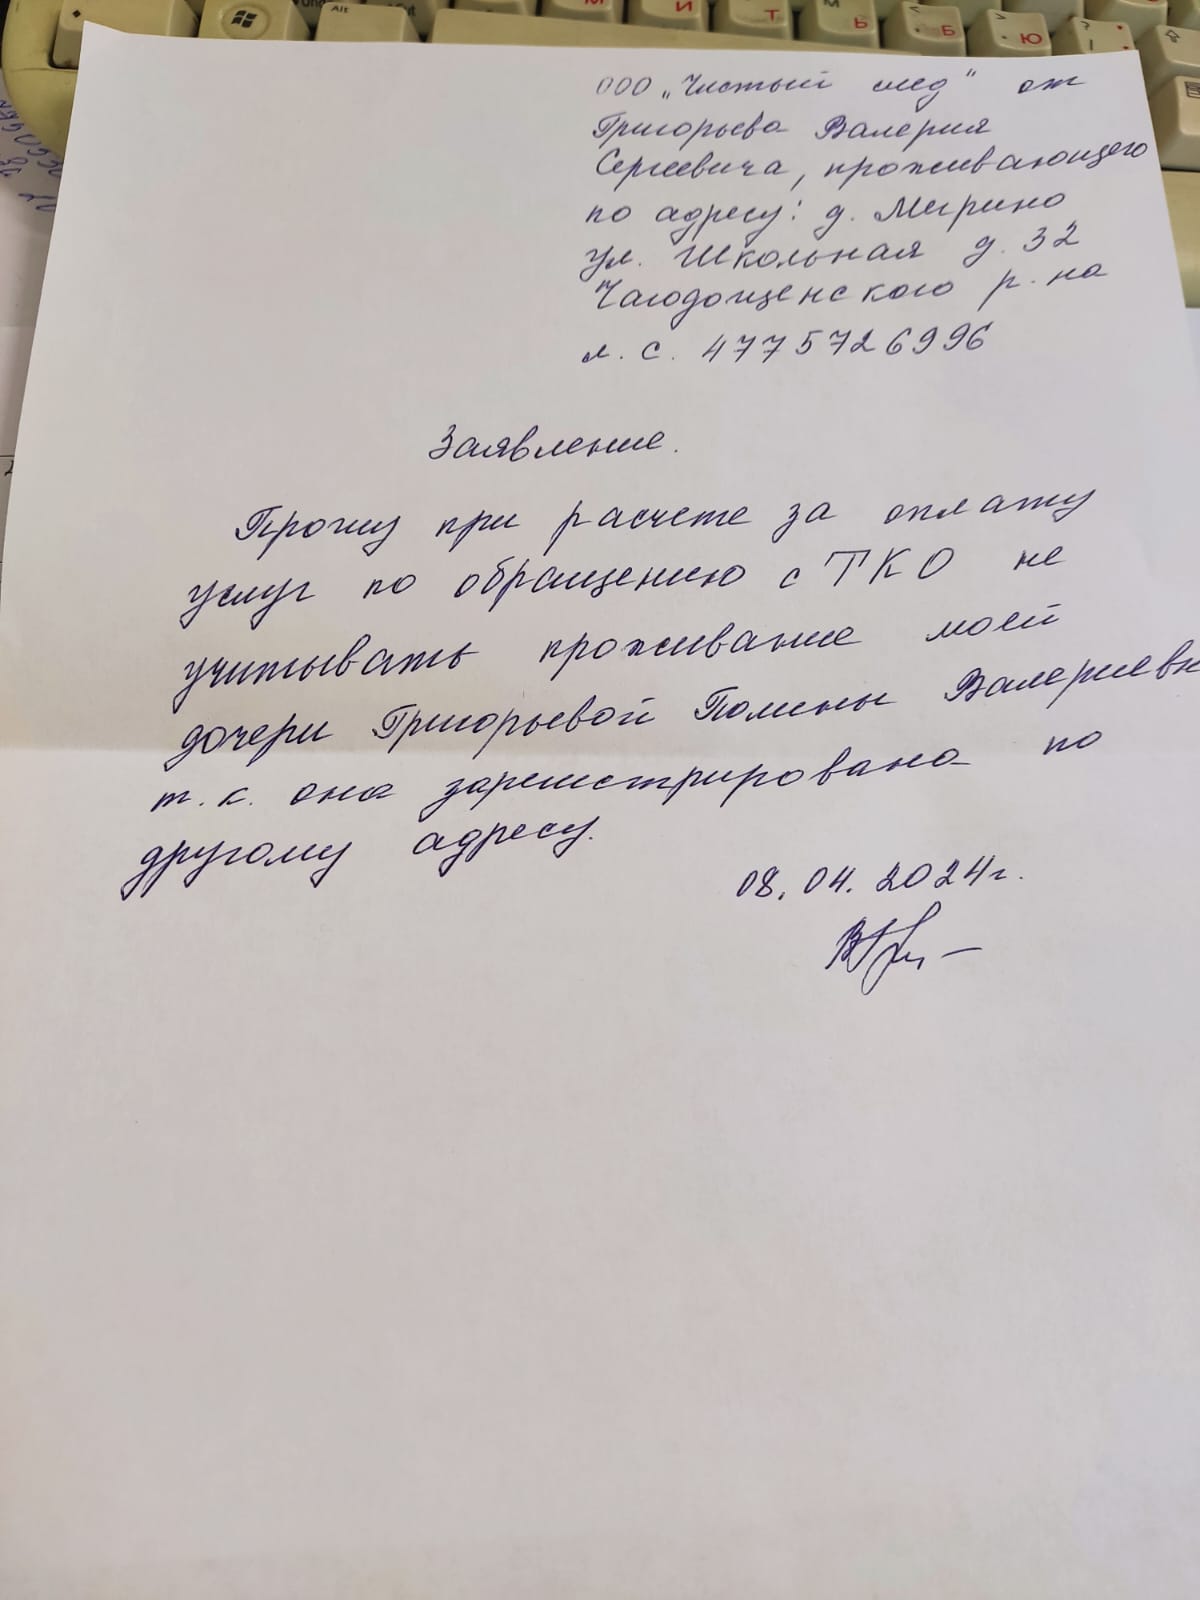 ООО "Чистый след" от
Григорьева Валерия
Сергеевича, проживающего
по адресу: д. Мегрино
ул. Школьная д. 32
Чагодощенского р-на
л.с. 4775726996
Заявление.
Прошу при расчете за оплату
услуг по обращению с ТКО не
учитывать проживание моей
дочери Григорьевой Полины Валериевн
т.к. она зарегистрирована по
другому адресу.
08.04.2024г.
Alt
М
И
Т
Ь
Б
Ю